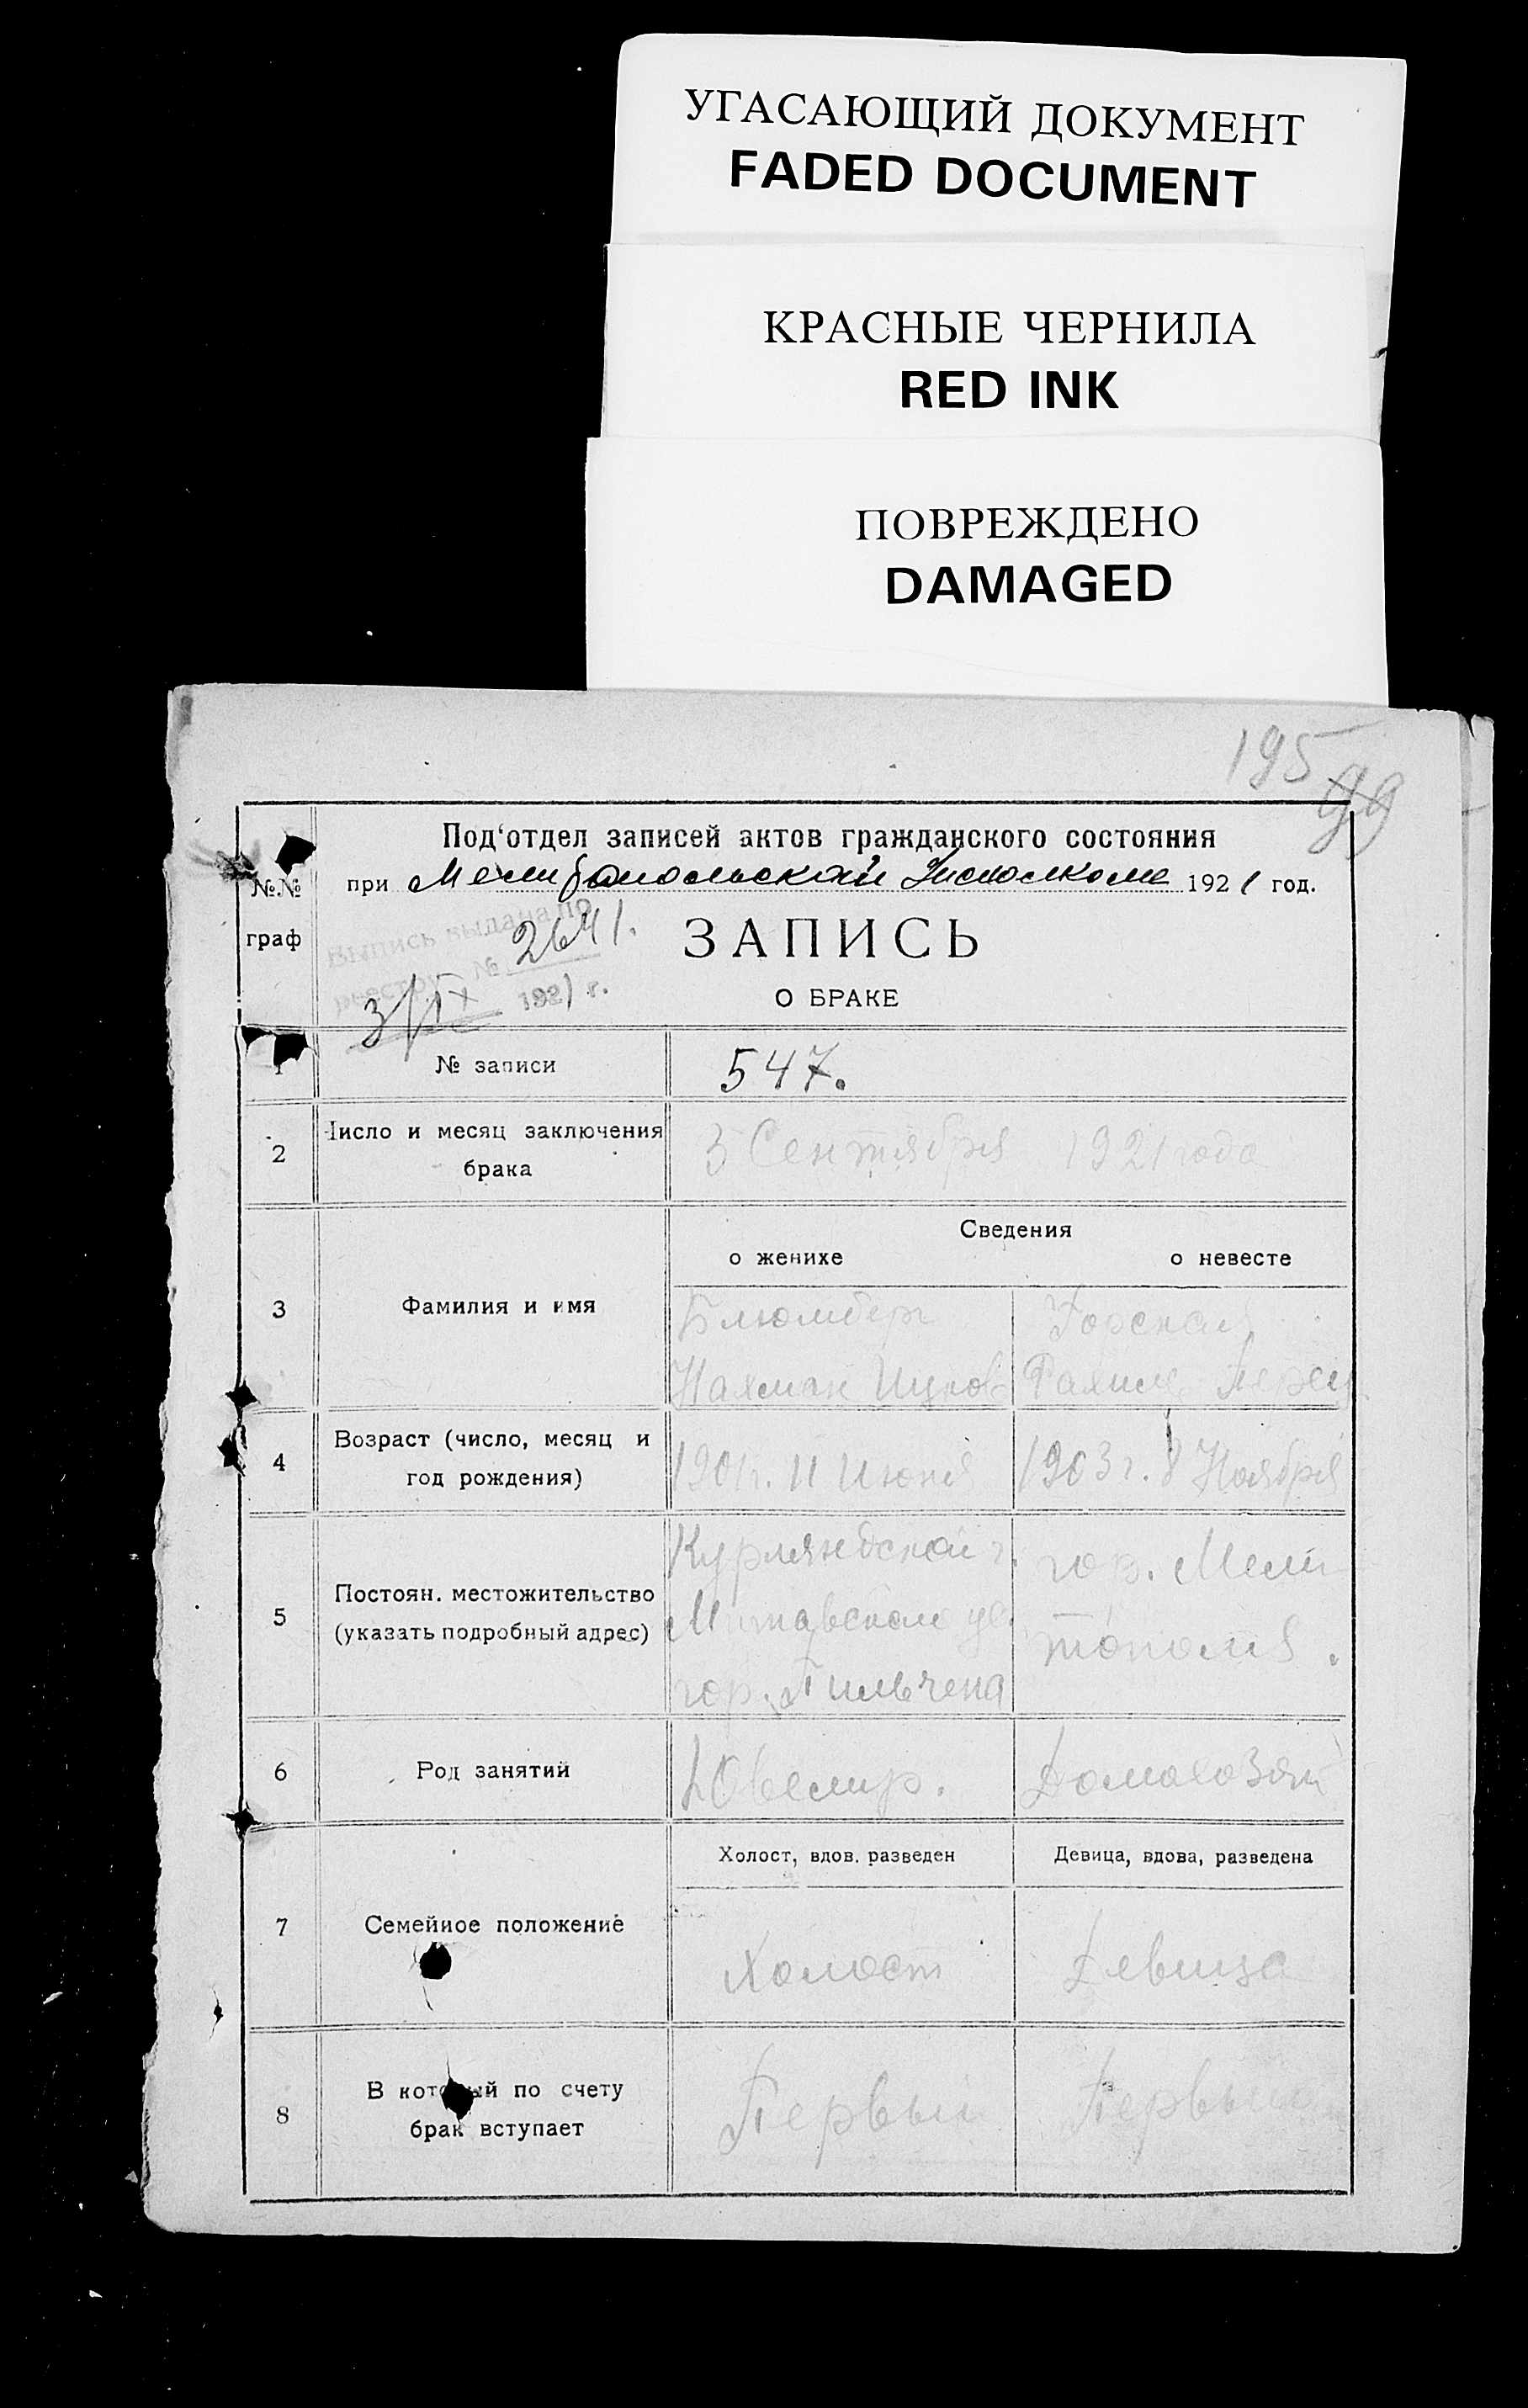 УГАСАЮЩИЙ ДОКУМЕНТ
FADED DOCUMENT
КРАСНЫЕ ЧЕРНИЛА
RED INK
ПОВРЕЖДЕНО
DAMAGED
195 99
Под‘отдел записей актов гражданского состояния
№№ граф
при Мелитопольском Исполкоме 1921 год.
Выпись выдана по
реестру № 2641.
3/IX 1921 г.
ЗАПИСЬ
О БРАКЕ
1 № записи 547.
2 Число и месяц заключения брака
3 Сентября 1921 года
Сведения
о женихе о невесте
3 Фамилия и имя
Блюмберг
Нахман Ицков
Рахиль Перец
4 Возраст (число, месяц и год рождения)
1901 г. 11 Июня 1903 г. 8 Ноября
5 Постоян. местожительство (указать подробный адрес)
Курляндской г.
Митавского уе.
гор. Пильтена
гор. Мели
тополь.
6 Род занятий
Ювелир. Домахозяй
Холост, вдов. разведен Девица, вдова, разведена
7 Семейное положение
Холост Девица
8 В который по счету брак вступает
Первый Первый